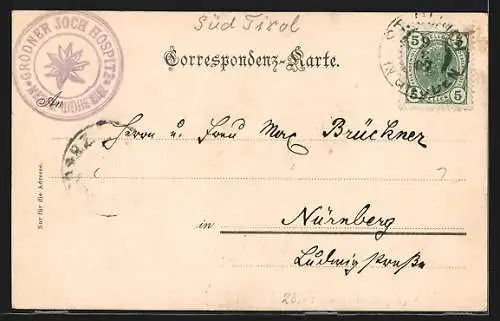 Süd Tirol
GRÖDNER JOCH HOSPITZ
Correspondenz-Karte.
5 5
5 5
IN GRÖDEN
An
Herrn u. Frau Max Brückner
Nur für die Adresse.
in Nürnberg
Ludwigstraße